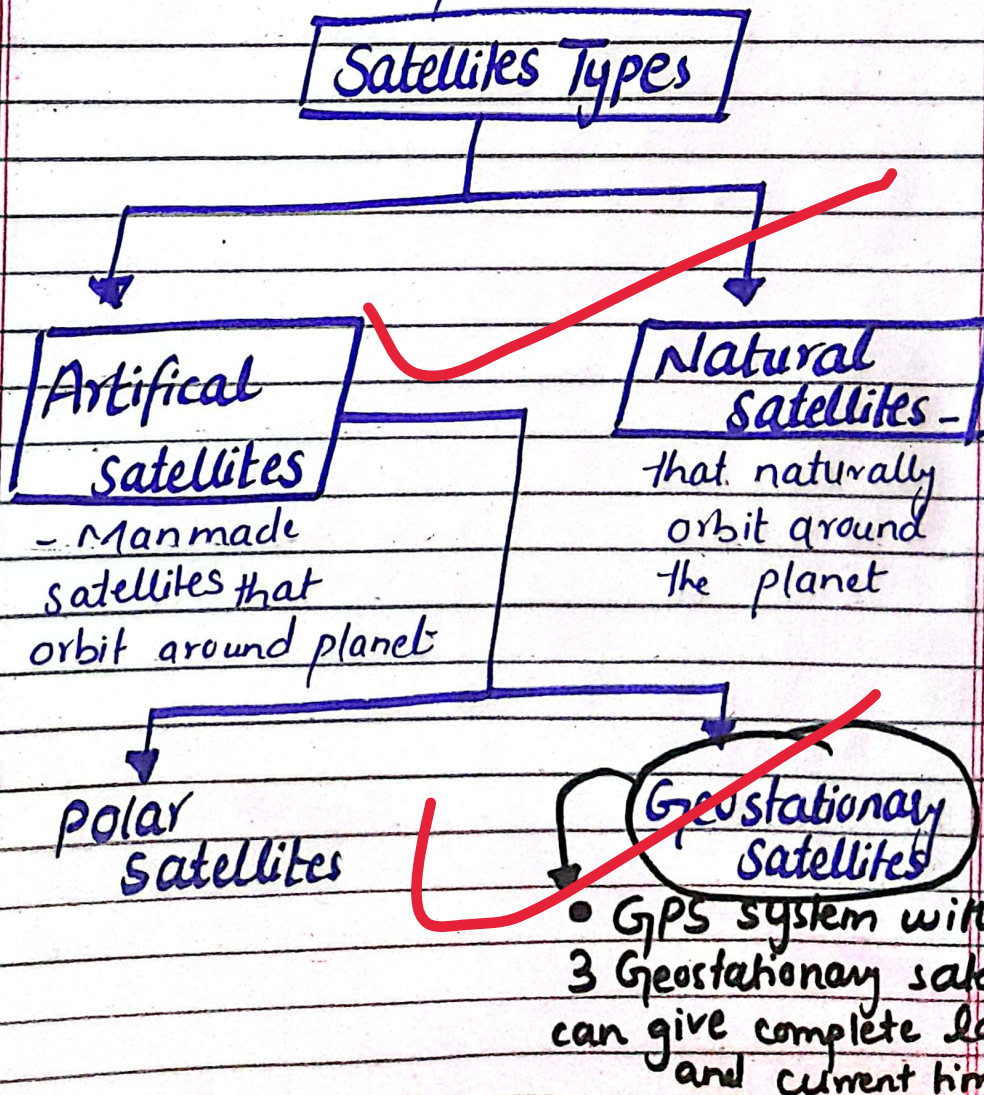 Satellites Types
Artifical
satellites
- Manmade
satellites that
orbit around planet
Natural
satellites -
that naturally
orbit around
the planet
Polar
satellites
Geostationary
satellites
• GPS system
3 Geostationary
can give complete
and current